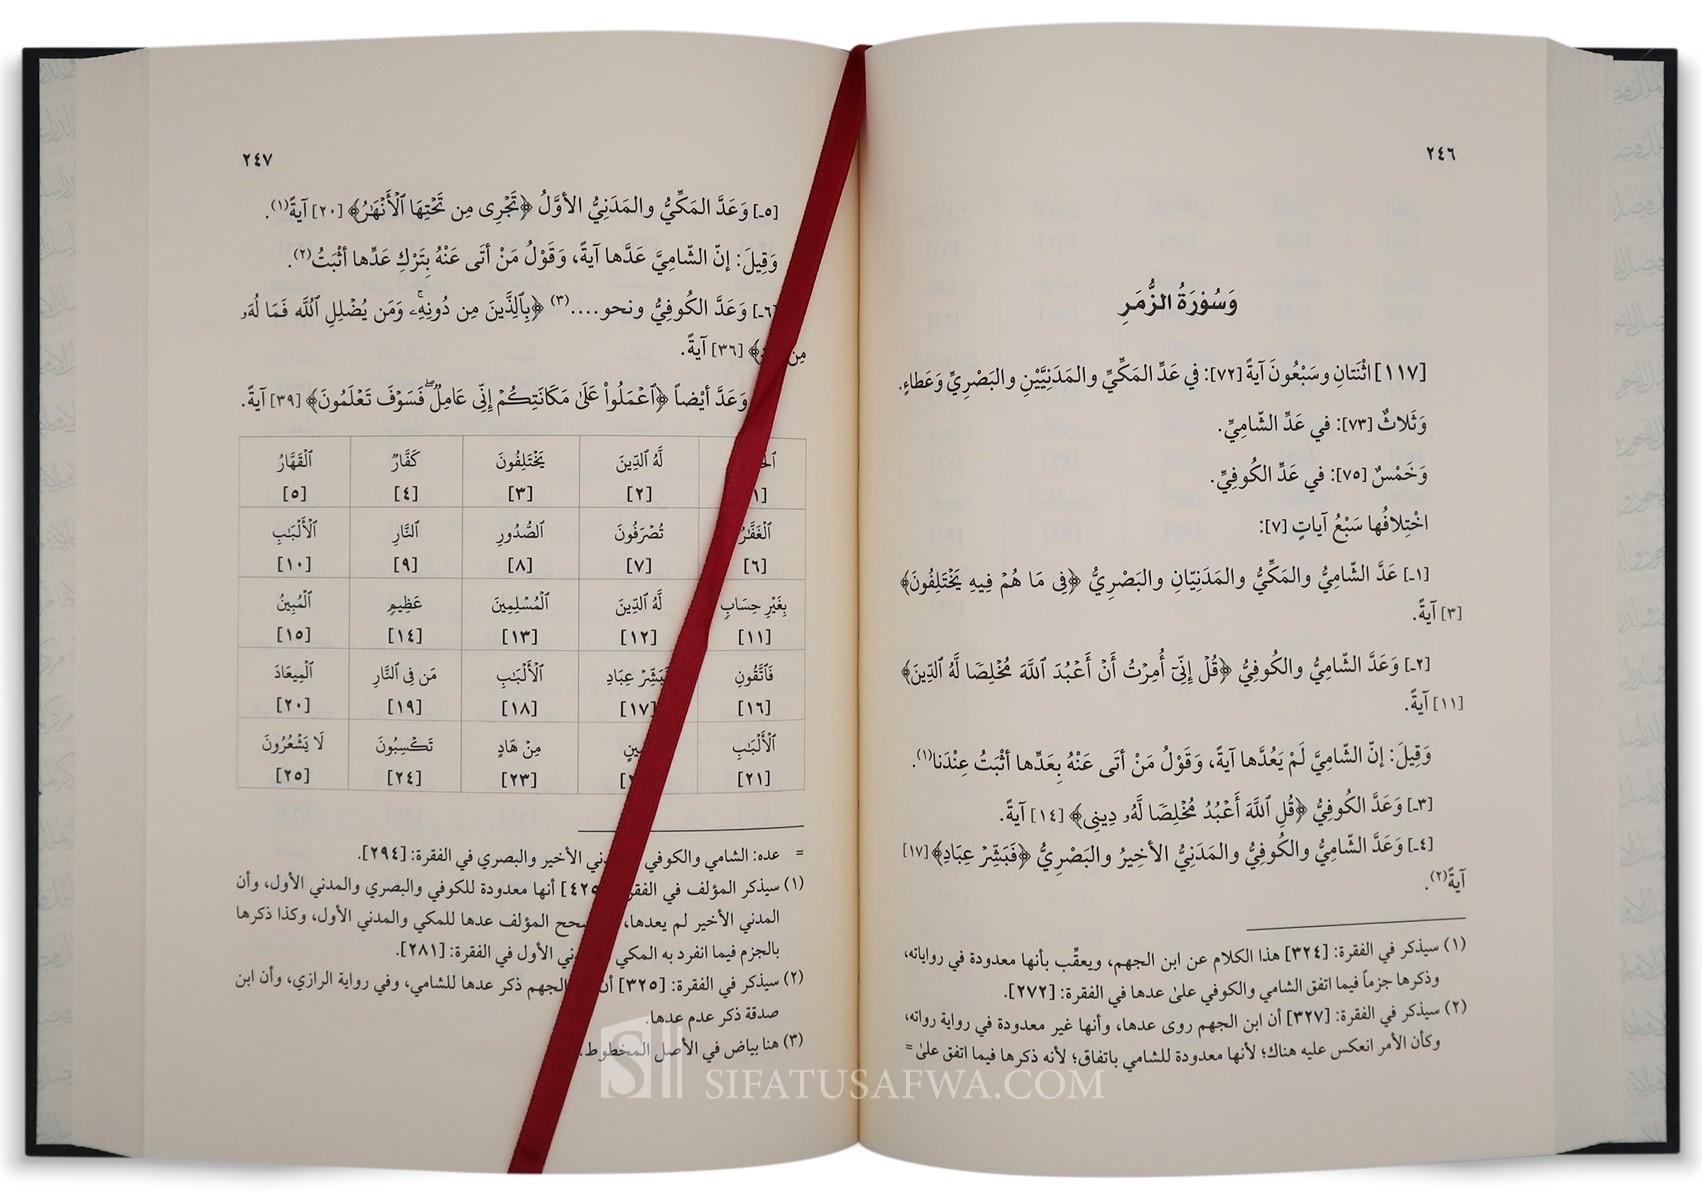 ٢٤٦
وَسُوْرَةُ الزُّمَرِ
[١١٧] اثْنَتانِ وسَبْعُونَ آيةً [٧٢]: في عَدِّ المَكِّيِّ والمَدَنِيَّيْنِ والبَصْرِيِّ وَعَطاءٍ.
وَثَلاثٌ [٧٣]: في عَدِّ الشّامِيِّ.
وَخَمْسٌ [٧٥]: في عَدِّ الكُوفِيِّ.
اخْتِلافُها سَبْعُ آياتٍ [٧]:
[١ـ] عَدَّ الشّامِيُّ والمَكِّيُّ والمَدَنِيّانِ والبَصْرِيُّ ﴿فِى مَا هُمْ فِيهِ يَخْتَلِفُونَ﴾
[٣] آيةً.
[٢ـ] وَعَدَّ الشّامِيُّ والكُوفِيُّ ﴿قُلْ إِنِّىٓ أُمِرْتُ أَنْ أَعْبُدَ ٱللَّهَ مُخْلِصًا لَّهُ ٱلدِّينَ﴾
[١١] آيةً.
وَقِيلَ: إنّ الشّامِيَّ لَمْ يَعُدَّها آيةً، وَقَوْلُ مَنْ أتَى عَنْهُ بِعَدِّها أثْبَتُ عِنْدَنا(١).
[٣ـ] وَعَدَّ الكُوفِيُّ ﴿قُلِ ٱللَّهَ أَعْبُدُ مُخْلِصًا لَّهُۥ دِينِى﴾ [١٤] آيةً.
[٤ـ] وَعَدَّ الشّامِيُّ والكُوفِيُّ والمَدَنِيُّ الأخِيرُ والبَصْرِيُّ ﴿فَبَشِّرْ عِبَادِ﴾ [١٧]
آيةً(٢).
(١) سيذكر في الفقرة: [٣٢٤] هذا الكلام عن ابن الجهم، ويعقِّب بأنها معدودة في رواياته،
وذكرها جزماً فيما اتفق الشامي والكوفي علىٰ عدها في الفقرة: [٢٧٢].
(٢) سيذكر في الفقرة: [٣٢٧] أن ابن الجهم روى عدها، وأنها غير معدودة في رواية رواته،
وكأن الأمر انعكس عليه هناك؛ لأنها معدودة للشامي باتفاق؛ لأنه ذكرها فيما اتفق علىٰ =
٢٤٧
[٥ـ] وَعَدَّ المَكِّيُّ والمَدَنِيُّ الأوَّلُ ﴿تَجْرِى مِن تَحْتِهَا ٱلْأَنْهَٰرُ﴾ [٢٠] آيةً(١).
وَقِيلَ: إنّ الشّامِيَّ عَدَّها آيةً، وَقَوْلُ مَنْ أتَى عَنْهُ بِتَرْكِ عَدِّها أثْبَتُ(٢).
[٦ـ] وَعَدَّ الكُوفِيُّ ونحو....(٣) ﴿بِٱلَّذِينَ مِن دُونِهِۦۚ وَمَن يُضْلِلِ ٱللَّه فَمَا لَهُۥ
مِن ﴾ [٣٦] آيةً.
وَعَدَّ أيْضاً ﴿ٱعْمَلُوا۟ عَلَىٰ مَكَانَتِكُمْ إِنِّى عَامِلٌۖ فَسَوْفَ تَعْلَمُونَ﴾ [٣٩] آيةً.
لَّهُ ٱلدِّينَ يَخْتَلِفُونَ كَفَّارٌ ٱلْقَهَّارُ
[٢] [٣] [٤] [٥]
ٱلْغَفَّٰرُ تُصْرَفُونَ ٱلصُّدُورِ ٱلنَّارِ ٱلْأَلْبَٰبِ
[٦] [٧] [٨] [٩] [١٠]
بِغَيْرِ حِسَابٍ لَّهُ ٱلدِّينَ ٱلْمُسْلِمِينَ عَظِيمٍ ٱلْمُبِينُ
[١١] [١٢] [١٣] [١٤] [١٥]
فَٱتَّقُونِ فَبَشِّرْ عِبَادِ ٱلْأَلْبَٰبِ مَن فِى ٱلنَّارِ ٱلْمِيعَادَ
[١٦] [١٧] [١٨] [١٩] [٢٠]
ٱلْأَلْبَٰبِ مِنْ هَادٍ تَكْسِبُونَ لَا يَشْعُرُونَ
[٢١] [٢٣] [٢٤] [٢٥]
= عده: الشامي والكوفي الأخير والبصري في الفقرة: [٢٩٤].
(١) سيذكر المؤلف في [٤٢٥] أنها معدودة للكوفي والبصري والمدني الأول، وأن
المدني الأخير لم يعدها، المؤلف عدها للمكي والمدني الأول، وكذا ذكرها
بالجزم فيما انفرد به المكي الأول في الفقرة: [٢٨١].
(٢) سيذكر في الفقرة: [٣٢٥] الجهم ذكر عدها للشامي، وفي رواية الرازي، وأن ابن
صدقة ذكر عدم عدها.
(٣) هنا بياض في الأصل المخطوط.
SIFATUSAFWA.COM